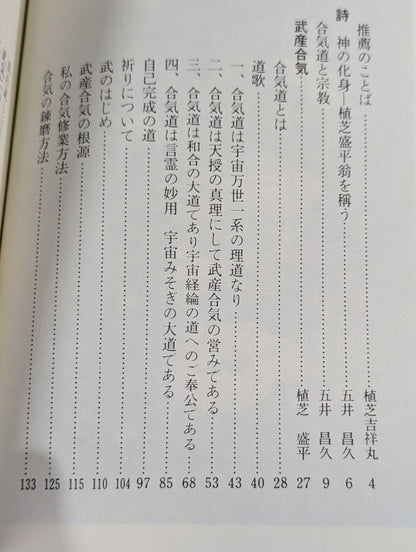 推薦のことば……………植芝吉祥丸 4
詩 神の化身―植芝盛平翁を稱う……………五井昌久 6
合気道と宗教……………五井昌久 9
武産合気……………植芝盛平 27
合気道とは……………28
道歌……………40
一、合気道は宇宙万世一系の理道なり……………43
二、合気道は天授の真理にして武産合気の営みである……………53
三、合気道は和合の大道であり宇宙経綸の道へのご奉公である……………68
四、合気道は言霊の妙用 宇宙みそぎの大道である……………85
自己完成の道……………97
祈りについて……………104
武のはじめ……………110
武産合気の根源……………115
私の合気修業方法……………125
合気の錬磨方法……………133